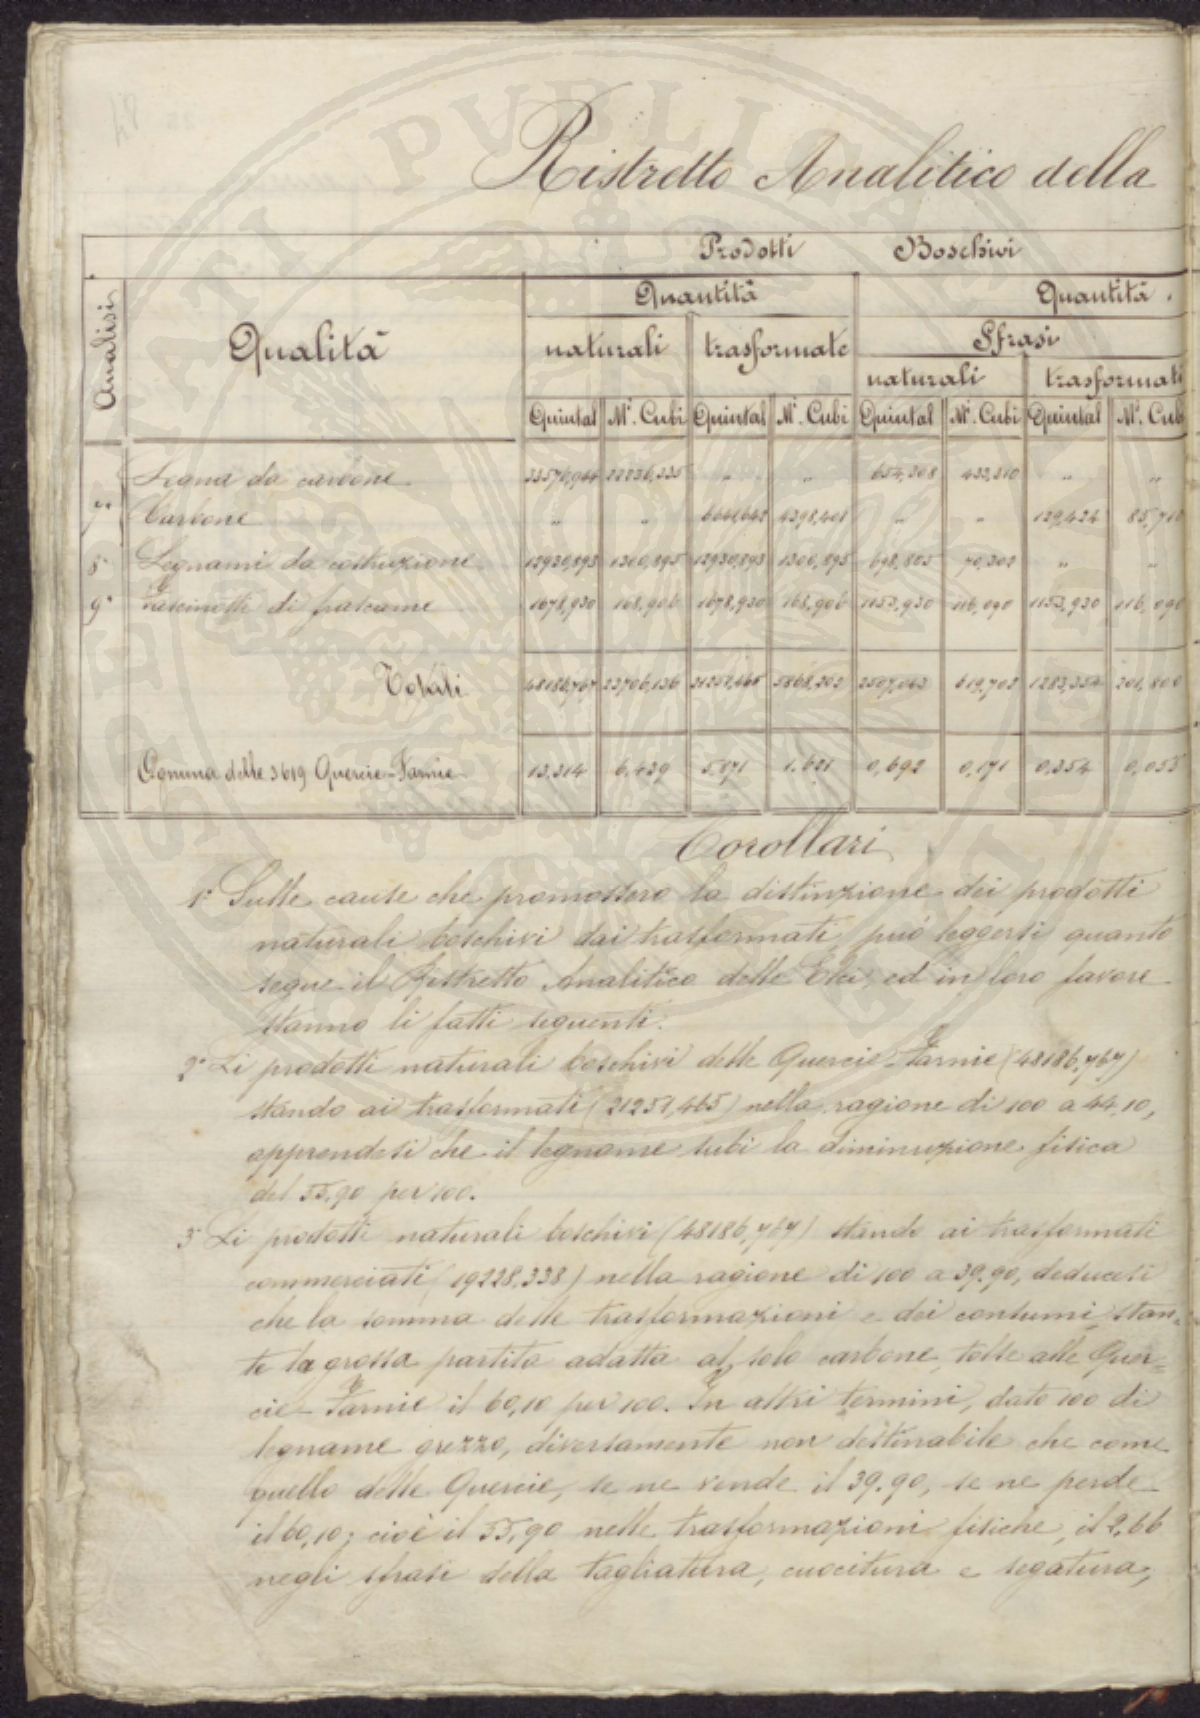 Ristretto Analitico della
Prodotti Boschivi
Analisi
Qualità
Quantità
Quantità
naturali trasformate
Sfrasi
naturali trasformati
Quintal M.i Cubi Quintal M.i Cubi Quintal M.i Cubi Quintal M.i Cub
7.a Legna da carbone 33576,944 22236,335 „ „ 654,308 433,310 „ „
Carbone „ „ 6641,642 4398,401 „ „ 129,424 85,710
8.a Legnami da costruzione 12930,893 1300,895 12930,893 1300,895 698,805 70,302 „ „
9.a Fascinotti di frascame 1678,930 168,906 1678,930 168,906 1153,930 116,090 1153,930 116,090
Totali 48186,767 23706,136 21251,465 5868,202 2507,043 619,702 1283,354 201,800
Comuna delle 3619 Quercie-Farnie 13,314 6,439 5,871 1.621 0,692 0,171 0,354 0,055
Corollari
1.° Sulle cause che promossero la distinzione dei prodotti
naturali boschivi dai trasformati, può leggersi quanto
segue il Ristretto Analitico delle Elci, ed in loro favore
stanno li fatti seguenti.
2.° Li prodotti naturali boschivi delle Quercie-Farnie (48186,767)
stando ai trasformati (21251,465) nella ragione di 100 a 44,10,
apprendesi che il legname subì la diminuzione fisica
del 55,90 per 100.
3.° Li prodotti naturali boschivi (48186,767) stando ai trasformati
commerciati (19228,338) nella ragione di 100 a 39.90, deducesi
che la somma delle trasformazioni e dei consumi, stan-
te la grossa partita adatta al solo carbone, tolse alle Quer-
cie-Farnie il 60,10 per 100. In altri termini, dato 100 di
legname grezzo, diversamente non destinabile che come
quello delle Quercie, se ne vende il 39.90, se ne perde
il 60,10; cioè il 55,90 nelle trasformazioni fisiche, il 2,66
negli sfrasi della tagliatura, cuocitura e segatura,